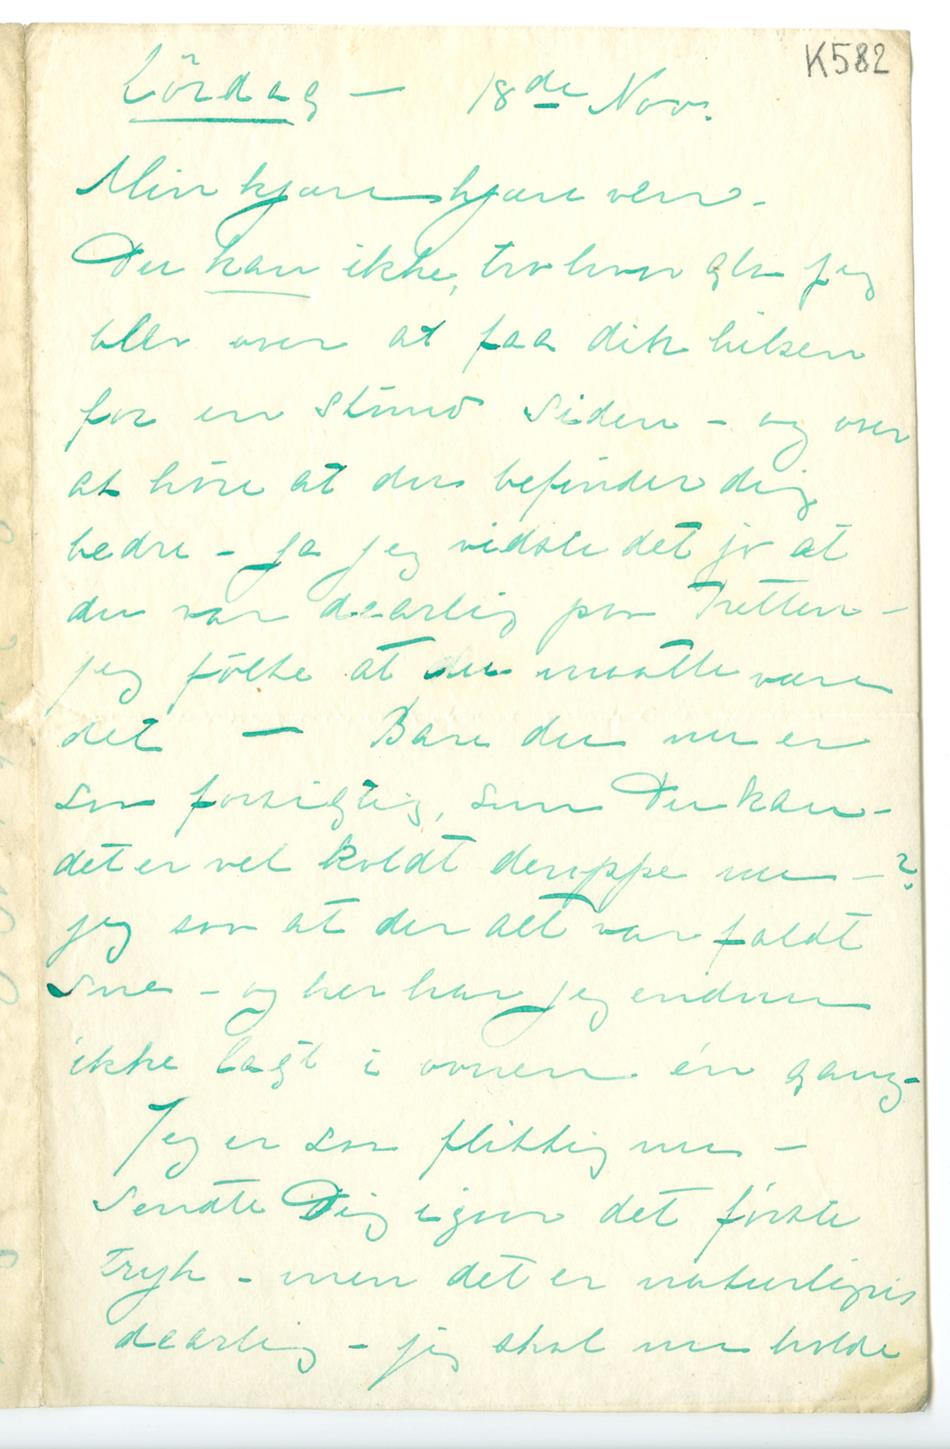 K582
Lördag – 18de Nov.
Min kjære kjære ven –
Du kan ikke, tro hvor gla jeg
blev over at faa dit hilsen
for en stund siden – og over
at höre at du befinder dig
bedre – Ja jeg vidste det jo at
du var daarlig paa Tretten –
jeg følte at du maatte være
det — Bare du nu er
saa forsigtig, som Du kan –
det er vel koldt deroppe nu – ?
jeg saa at der alt var faldt
sne – og her har jeg endnu
ikke lagt i ovnen én gang –
Jeg er saa flittig nu –
sendte Dig igaar det første
tryk – men det er naturligvis
daarlig – jeg skal nu holde